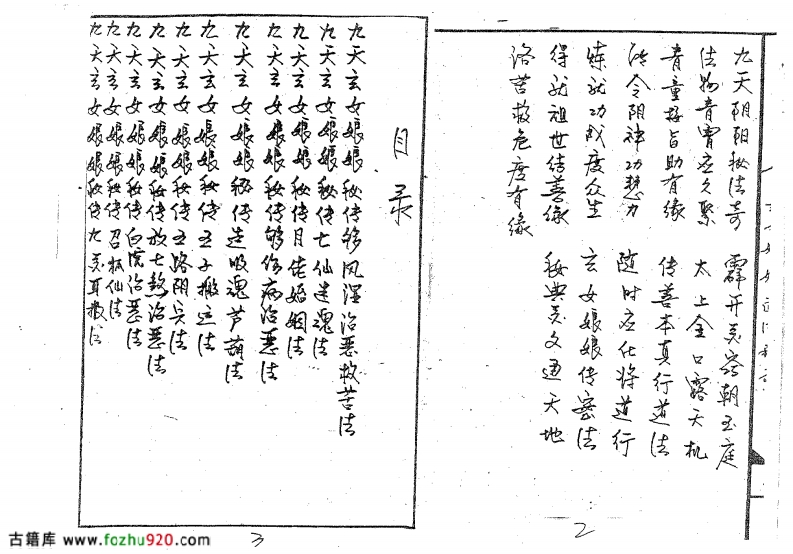 九天阴阳秘法奇 霹开灵窍朝玉庭
法物青霄应久聚 太上金口露天机
青童接旨助有缘 传善本真行道法
令阴神功 力 随时应化将道行
炼就功成度众生 玄女娘娘传密法
得就祖世传善缘 秘典灵文通天地
苦救危度有缘
2
目录
九天玄女娘娘秘传移风湿治恶救苦法
九天玄女娘娘秘传七仙迷魂法
九天玄女娘娘秘传月佬婚姻法
九天玄女娘娘秘传够伤病治恶法
九天玄女娘娘秘传迷吸魂芦葫法
九天玄女娘娘秘传五子搬运法
九天玄女娘娘秘传五路阴兵法
九天玄女娘娘秘传放七煞治恶法
九天玄女娘娘秘传白虎治恶法
九天玄女娘娘秘传召板仙法
九天玄女娘娘秘传九灵耳报法
3
古籍库 www.fozhu920.com